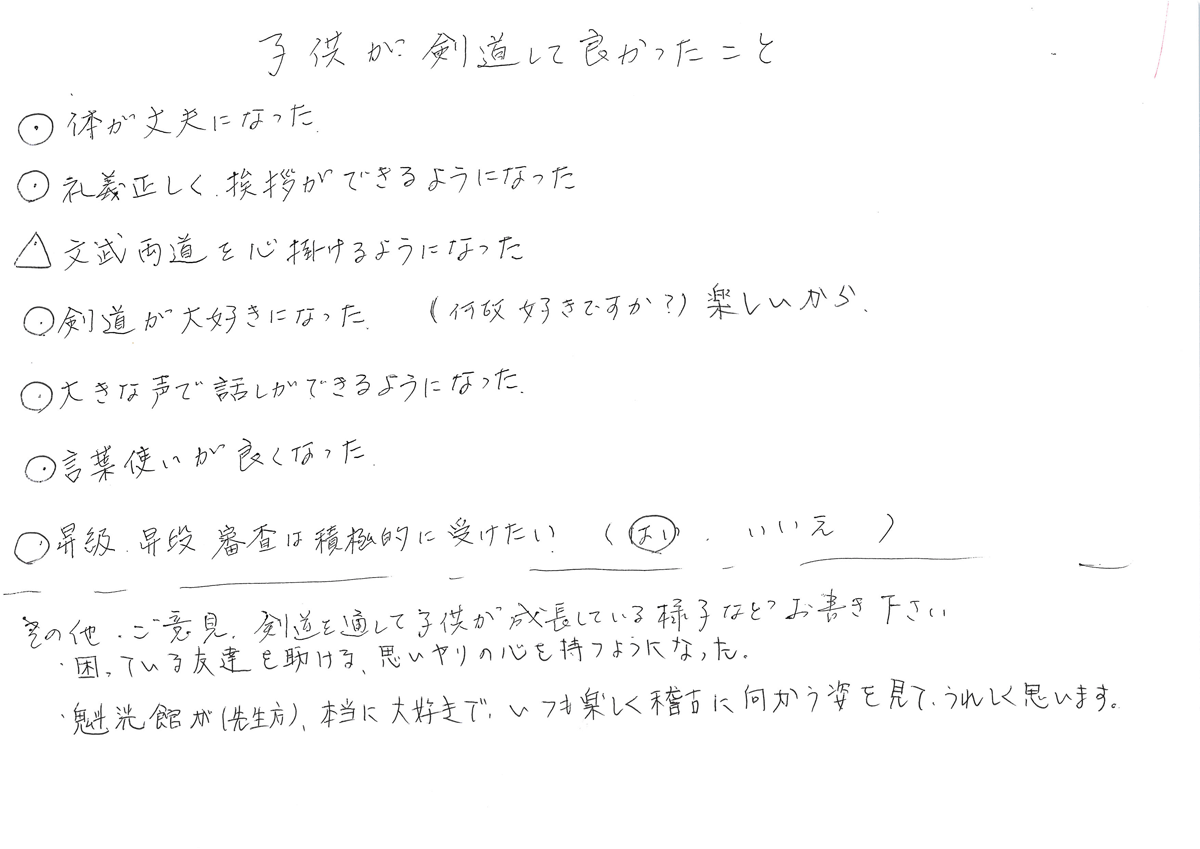 子供が剣道して良かったこと
⊙ 体が丈夫になった.
⊙ 礼義正しく.挨拶ができるようになった
△ 文武両道を心掛けるようになった
⊙ 剣道が大好きになった. (何故好きですか?) 楽しいから.
⊙ 大きな声で話しができるようになった.
⊙ 言葉使いが良くなった.
⊙ 昇級.昇段 審査は積極的に受けたい. ( はい . いいえ )
その他.ご意見.剣道を通して子供が成長している様子などお書き下さい
・困っている友達を助ける、思いヤリの心を持つようになった。
・魁洗館が(先生方)、本当に大好きで、いつも楽しく稽古に向かう姿を見て、うれしく思います。